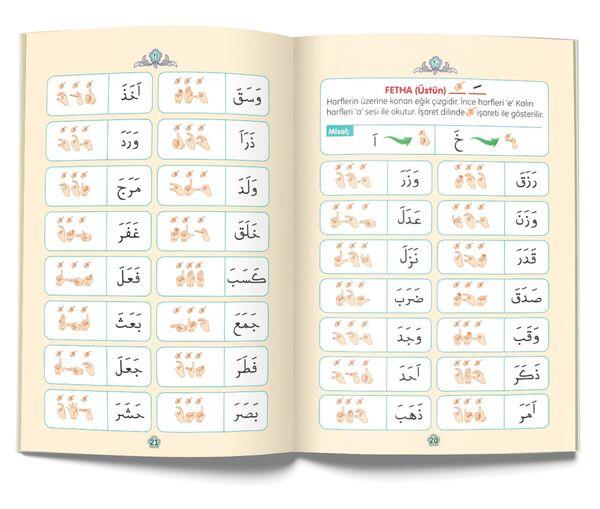 FETHA (Üstün)
Harflerin üzerine konan eğik çizgidir. İnce harfleri 'e' Kalın
harfleri 'a' sesi ile okutur. İşaret dilinde işareti ile gösterilir.
Misal;
خَ اَ
رَزَقَ وَزَرَ
وَزَنَ عَدَلَ
قَدَرَ نَزَلَ
صَدَقَ ضَرَبَ
وَقَبَ وَجَدَ
ذَكَرَ اَحَدَ
اَمَرَ ذَهَبَ
20
وَسَقَ اَخَذَ
ذَرَاَ وَرَدَ
وَلَدَ مَرَجَ
خَلَقَ غَفَرَ
كَسَبَ فَعَلَ
جَمَعَ بَعَثَ
فَطَرَ جَعَلَ
بَصَرَ حَشَرَ
21